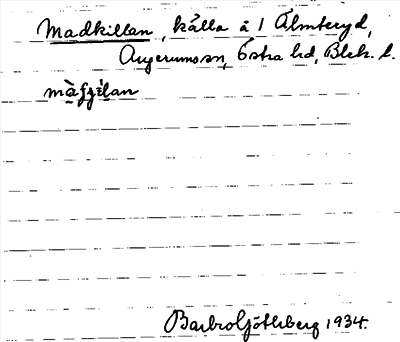 Madkillan, källa å 1 Älmteryd,
Augerums sn, Östra hd, Blek. l.
Barbro Götlberg 1934.